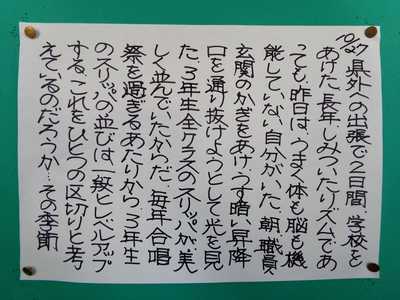 10/27 県外への出張で2日間、学校を
あけた。長年しみついたリズムであ
っても、昨日は、うまく体も脳も機
能していない自分がいた。朝、職員
玄関のかぎをあけ、うす暗い昇降
口を通り抜けようとして光を見
た。3年生全クラスのスリッパが、美
しく並んでいたからだ。毎年、合唱
祭を過ぎるあたりから、3年生
のスリッパの並びは一段とレベルアップ
する。これをひとつの区切りと考
えているのだろうか…その季節